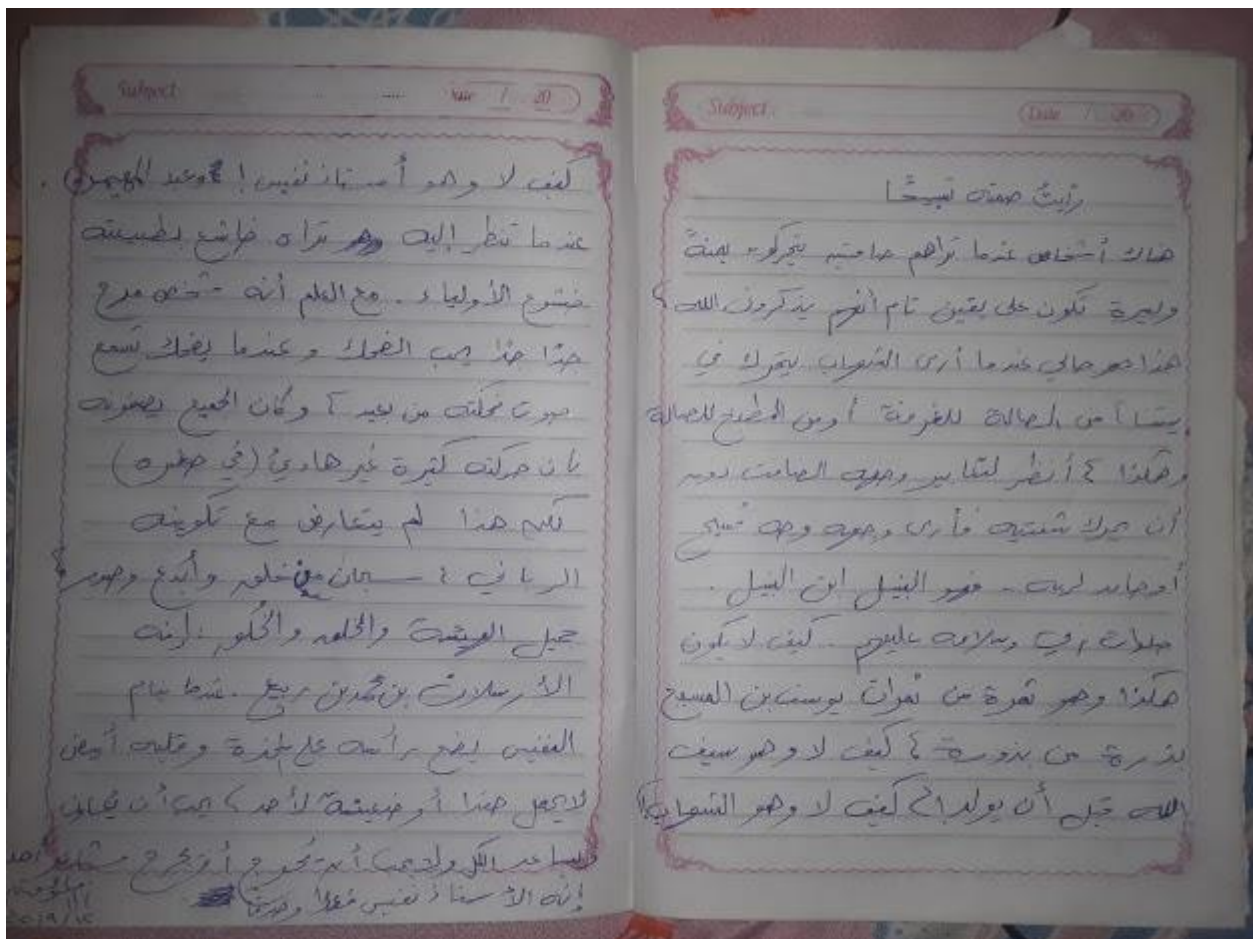 Subject:
Date / 20
رأيتُ صمته تسبيحًا
هناك أشخاص عندما تراهم صامتين يتحركون يمنةً
ويسرة تكون على يقين تام أنهم يذكرون الله ؟
هذا هو حالي عندما أرى الشهاب يتحرك في
بيتنا من الصالة للغرفة أو من المطبخ للصالة
وهكذا ؟ أنظر لتعابير وجهه الصامت دون
أن يحرك شفتيه فأرى وجهه وجه تسبيح
أو حامد لربه .. فهو النبيل ابن النبيل .
صلوات ربي وسلامه عليهم .. كيف لا يكون
هكذا وهو ثمرة من ثمرات يوسف بن المسيح
بذرة من بذوره ؟ كيف لا وهو سيف
الله قبل أن يولد !؟ كيف لا وهو الشهاب !
Subject:
Date / 20
كيف لا وهو أستاذ نفيس ! وعبد المهيمن .
عندما تنظر إليه تراه خاشع بطبيعته
خشوع الأولياء . مع العلم أنه شخص مرح
جدًا جدًا يحب الضحك وعندما يضحك تسمع
صوت ضحكته من بعيد ؟ وكان الجميع يصفونه
بأن حركته كثيرة غير هادئ (في صغره)
لكن هذا لم يتعارض مع تكوينه
الرباني ؛ سبحان من خلق وأبدع وصور
جميل الهيئة والخلق والخُلق : إنه
الأرسلان بن محمد بن ربيع . عندما ينام
النفيس يضع رأسه على المخدة وقلبه أبيض
لا يحمل حقدا أو ضغينة لأحد ؟ يحب أن يعاون
ويساعد الكل ولا يحب أن يُحرج أو يجرح مشاعر أحد
إنه الأستاذ نفيس فعلًا وصدقًا